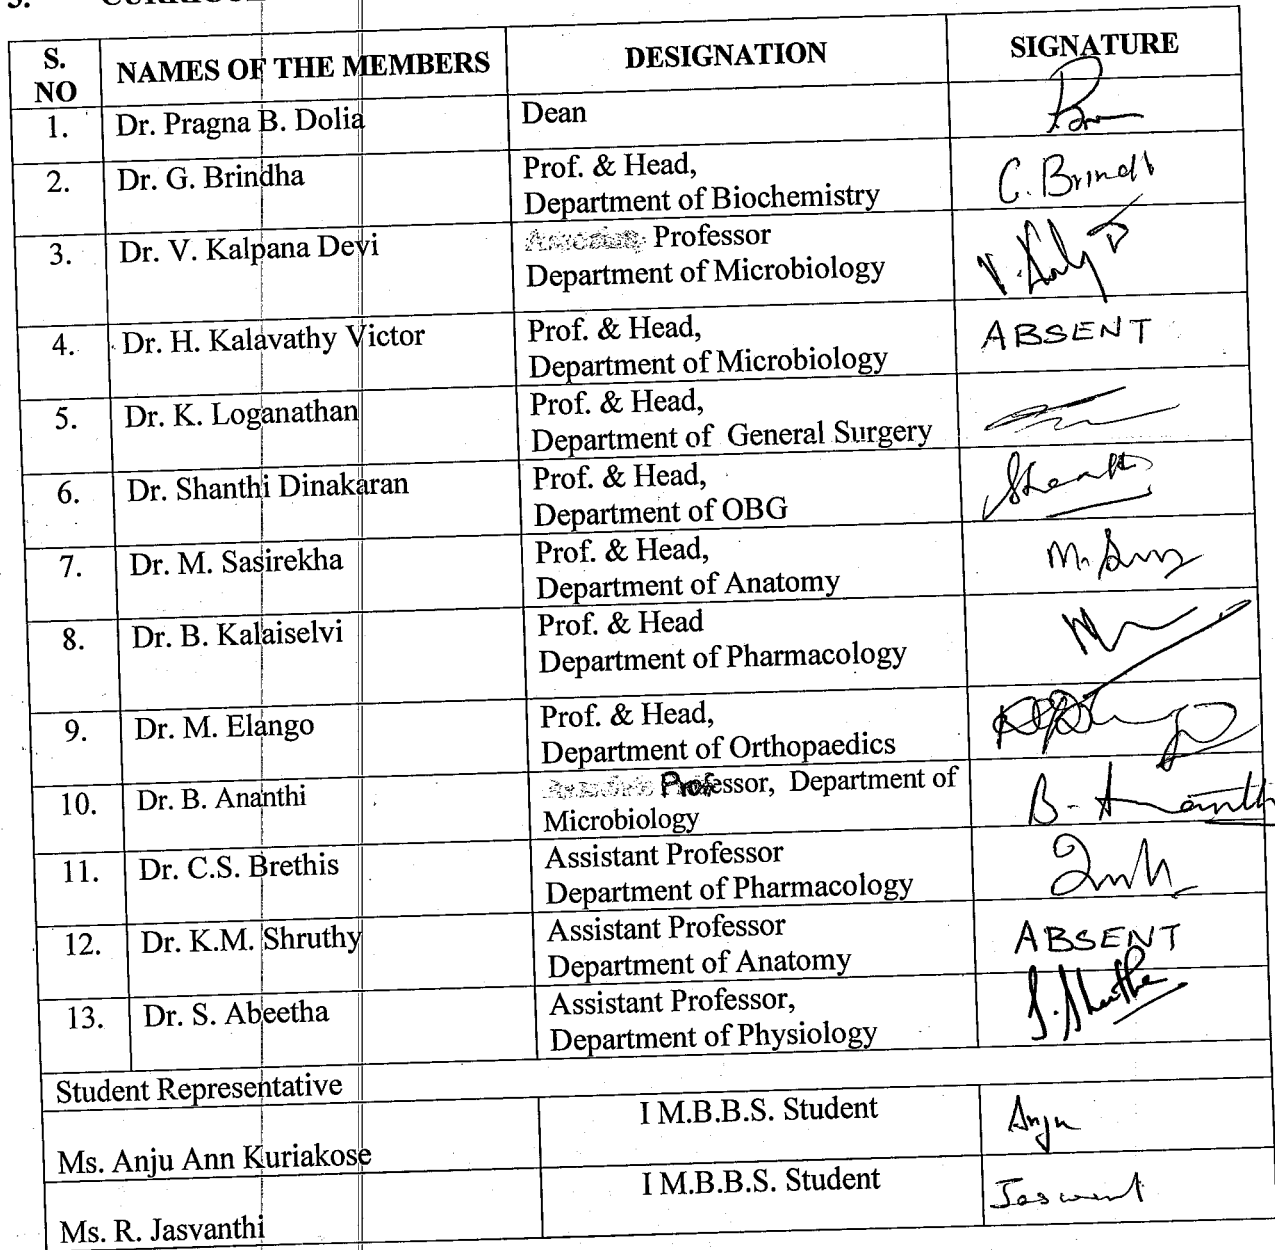 S.
NO
NAMES OF THE MEMBERS
DESIGNATION
SIGNATURE
1.
Dr. Pragna B. Dolia
Dean
2.
Dr. G. Brindha
Prof. & Head,
Department of Biochemistry
G. Brindh
3.
Dr. V. Kalpana Devi
Professor
Department of Microbiology
4.
Dr. H. Kalavathy Victor
Prof. & Head,
Department of Microbiology
ABSENT
5.
Dr. K. Loganathan
Prof. & Head,
Department of General Surgery
6.
Dr. Shanthi Dinakaran
Prof. & Head,
Department of OBG
7.
Dr. M. Sasirekha
Prof. & Head,
Department of Anatomy
8.
Dr. B. Kalaiselvi
Prof. & Head
Department of Pharmacology
9.
Dr. M. Elango
Prof. & Head,
Department of Orthopaedics
10.
Dr. B. Ananthi
Professor, Department of
Microbiology
B- Ananthi
11.
Dr. C.S. Brethis
Assistant Professor
Department of Pharmacology
12.
Dr. K.M. Shruthy
Assistant Professor
Department of Anatomy
ABSENT
13.
Dr. S. Abeetha
Assistant Professor,
Department of Physiology
Student Representative
Ms. Anju Ann Kuriakose
I M.B.B.S. Student
Anju
Ms. R. Jasvanthi
I M.B.B.S. Student